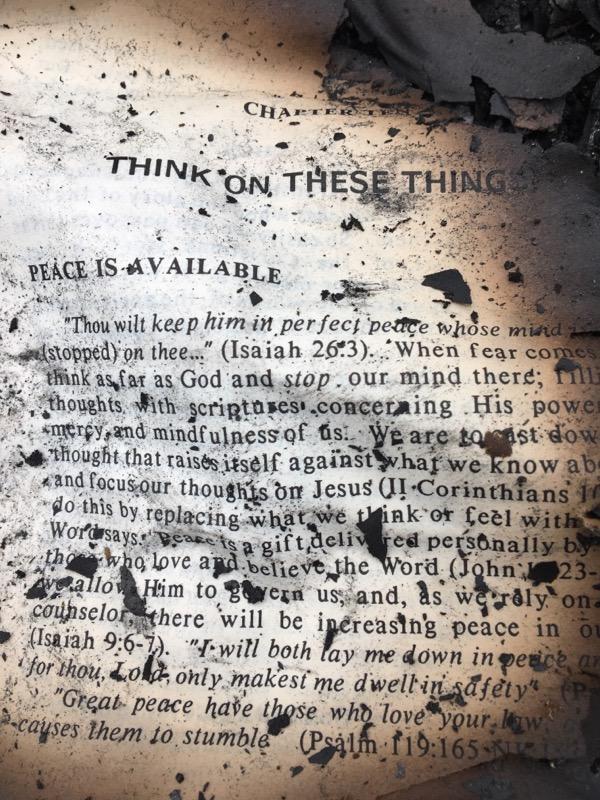 CHAPTER TEN
THINK ON THESE THINGS
PEACE IS AVAILABLE
"Thou wilt keep him in perfect peace whose mind is
(stopped) on thee..." (Isaiah 26:3). When fear comes
think as far as God and stop our mind there;
thoughts with scriptures concerning His
mercy, and mindfulness of us. We are to cast
thought that raises itself against what we know
and focus our thoughts on Jesus (II Corinthians
do this by replacing what we think or feel with
Word says. Peace is a gift delivered personally by
those who love and believe the Word (John
we allow Him to govern us, and, as we rely on
counselor, there will be increasing peace in
(Isaiah 9:6-7). "I will both lay me down in peace
for thou, Lord, only makest me dwell in safety"
"Great peace have those who love your law,
causes them to stumble (Psalm 119:165